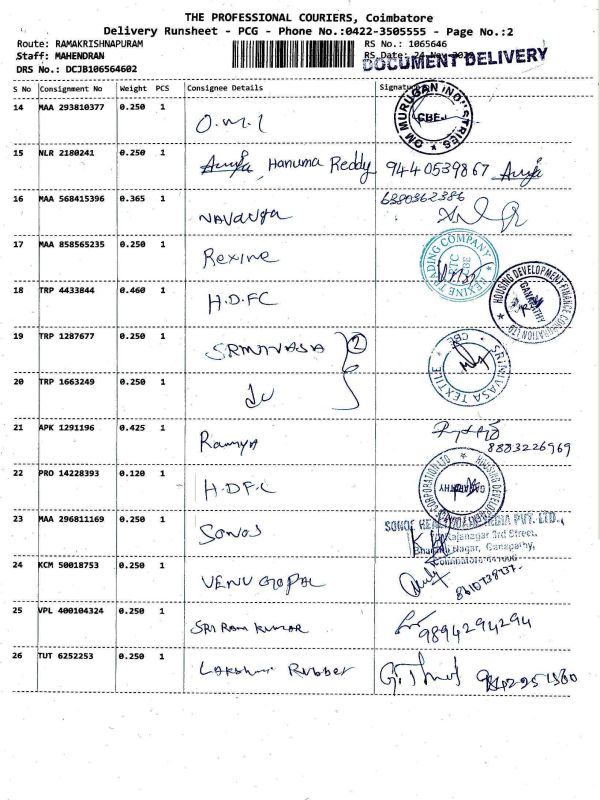 THE PROFESSIONAL COURIERS, Coimbatore
Delivery Runsheet - PCG - Phone No.:0422-3505555 - Page No.:2
Route: RAMAKRISHNAPURAM RS No.: 1065646
Staff: MAHENDRAN RS Date: 24-Nov
DOCUMENT DELIVERY
DRS No.: DCJB106564602
S No Consignment No Weight PCS Consignee Details Signature
14 MAA 293810377 0.250 1 O.M.I OM MURUGAN INDUSTRIES * CBE.
15 NLR 2180241 0.250 1 Hanuma Reddy 9440539867
16 MAA 568415396 0.365 1 Navanya 6380362386
17 MAA 858565235 0.250 1 Rexine REXINE TRADING COMPANY
18 TRP 4433844 0.460 1 H.D.F.C HOUSING DEVELOPMENT FINANCE CORPORATION LTD GANAPATHY
19 TRP 1287677 0.250 1 SRINIVASA 2 SRINIVASA TEXTILE CBE
20 TRP 1663249 0.250 1
21 APK 1291196 0.425 1 Ramya 8883226969
22 PRO 14228393 0.120 1 H.D.F.C HOUSING DEVELOPMENT CORPORATION LTD GANAPATHY
23 MAA 296811169 0.250 1 Sonos INDIA PVT. LTD.,
Rajanagar 3rd Street,
Nagar, Ganapathy,
Coimbatore-641006
24 KCM 50018753 0.250 1 VENU GOPAL 8610738737
25 VPL 400104324 0.250 1 SRI RAM KUMAR 9894294294
26 TUT 6252253 0.250 1 Lakshmi Rubber